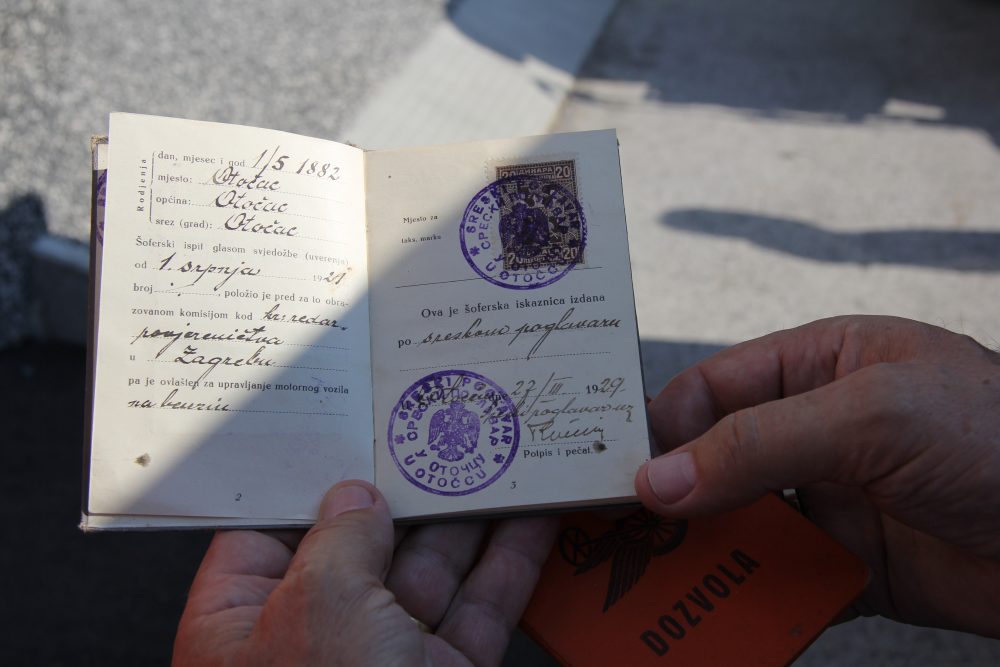 Rodjenja
dan, mjesec i god. 1/5 1882
mjesto: Otočac
općina: Otočac
srez (grad): Otočac
Šoferski ispit glasom svjedodžbe (uverenja)
od 1. srpnja 1921
broj , položio je pred za to obra-
zovanom komisijom kod kr. redar.
povjereničtva
u Zagrebu
pa je ovlašten za upravljanje motornog vozila
na benzin
2
Mjesto za
taks. marku
20 ДИНАРА 20
20
SRESKI
СРЕСКИ
У ОТОЧЦУ
U OTOČCU
Ova je šoferska iskaznica izdana
po sreskom poglavaru
27/III 1929
poglavar
SRESKI POGLAVAR
СРЕСКИ ПОГЛАВАР
У ОТОЧЦУ
U OTOČCU
Potpis i pečat.
3
DOZVOLA